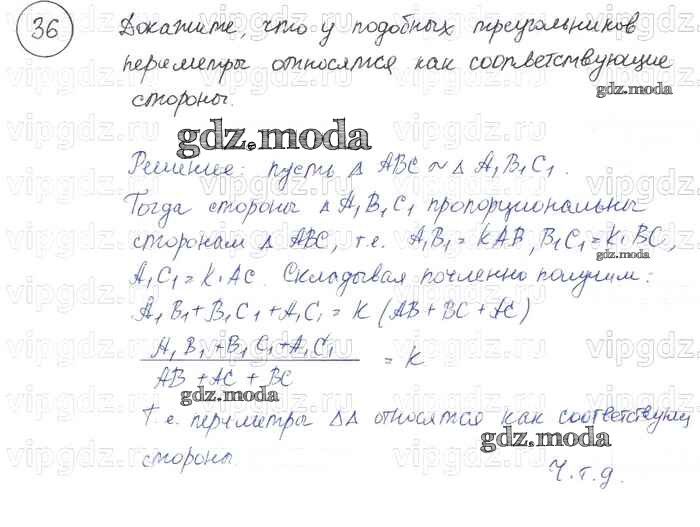 36 Докажите, что у подобных треугольников
периметры относятся как соответствующие
стороны.
gdz.moda
gdz.moda
Решение: пусть Δ ABC ~ Δ A₁B₁C₁.
Тогда стороны Δ A₁B₁C₁ пропорциональны
сторонам Δ ABC, т.е. A₁B₁ = KAB, B₁C₁ = K·BC,
gdz.moda
A₁C₁ = K·AC. Складывая почленно получим:
A₁B₁ + B₁C₁ + A₁C₁ = K (AB + BC + AC)
A₁B₁ + B₁C₁ + A₁C₁
AB + AC + BC
= K
gdz.moda
Т.е. периметры ΔΔ относятся как соответствующ
gdz.moda
стороны.
Ч.т.д.
vipgdz.ru